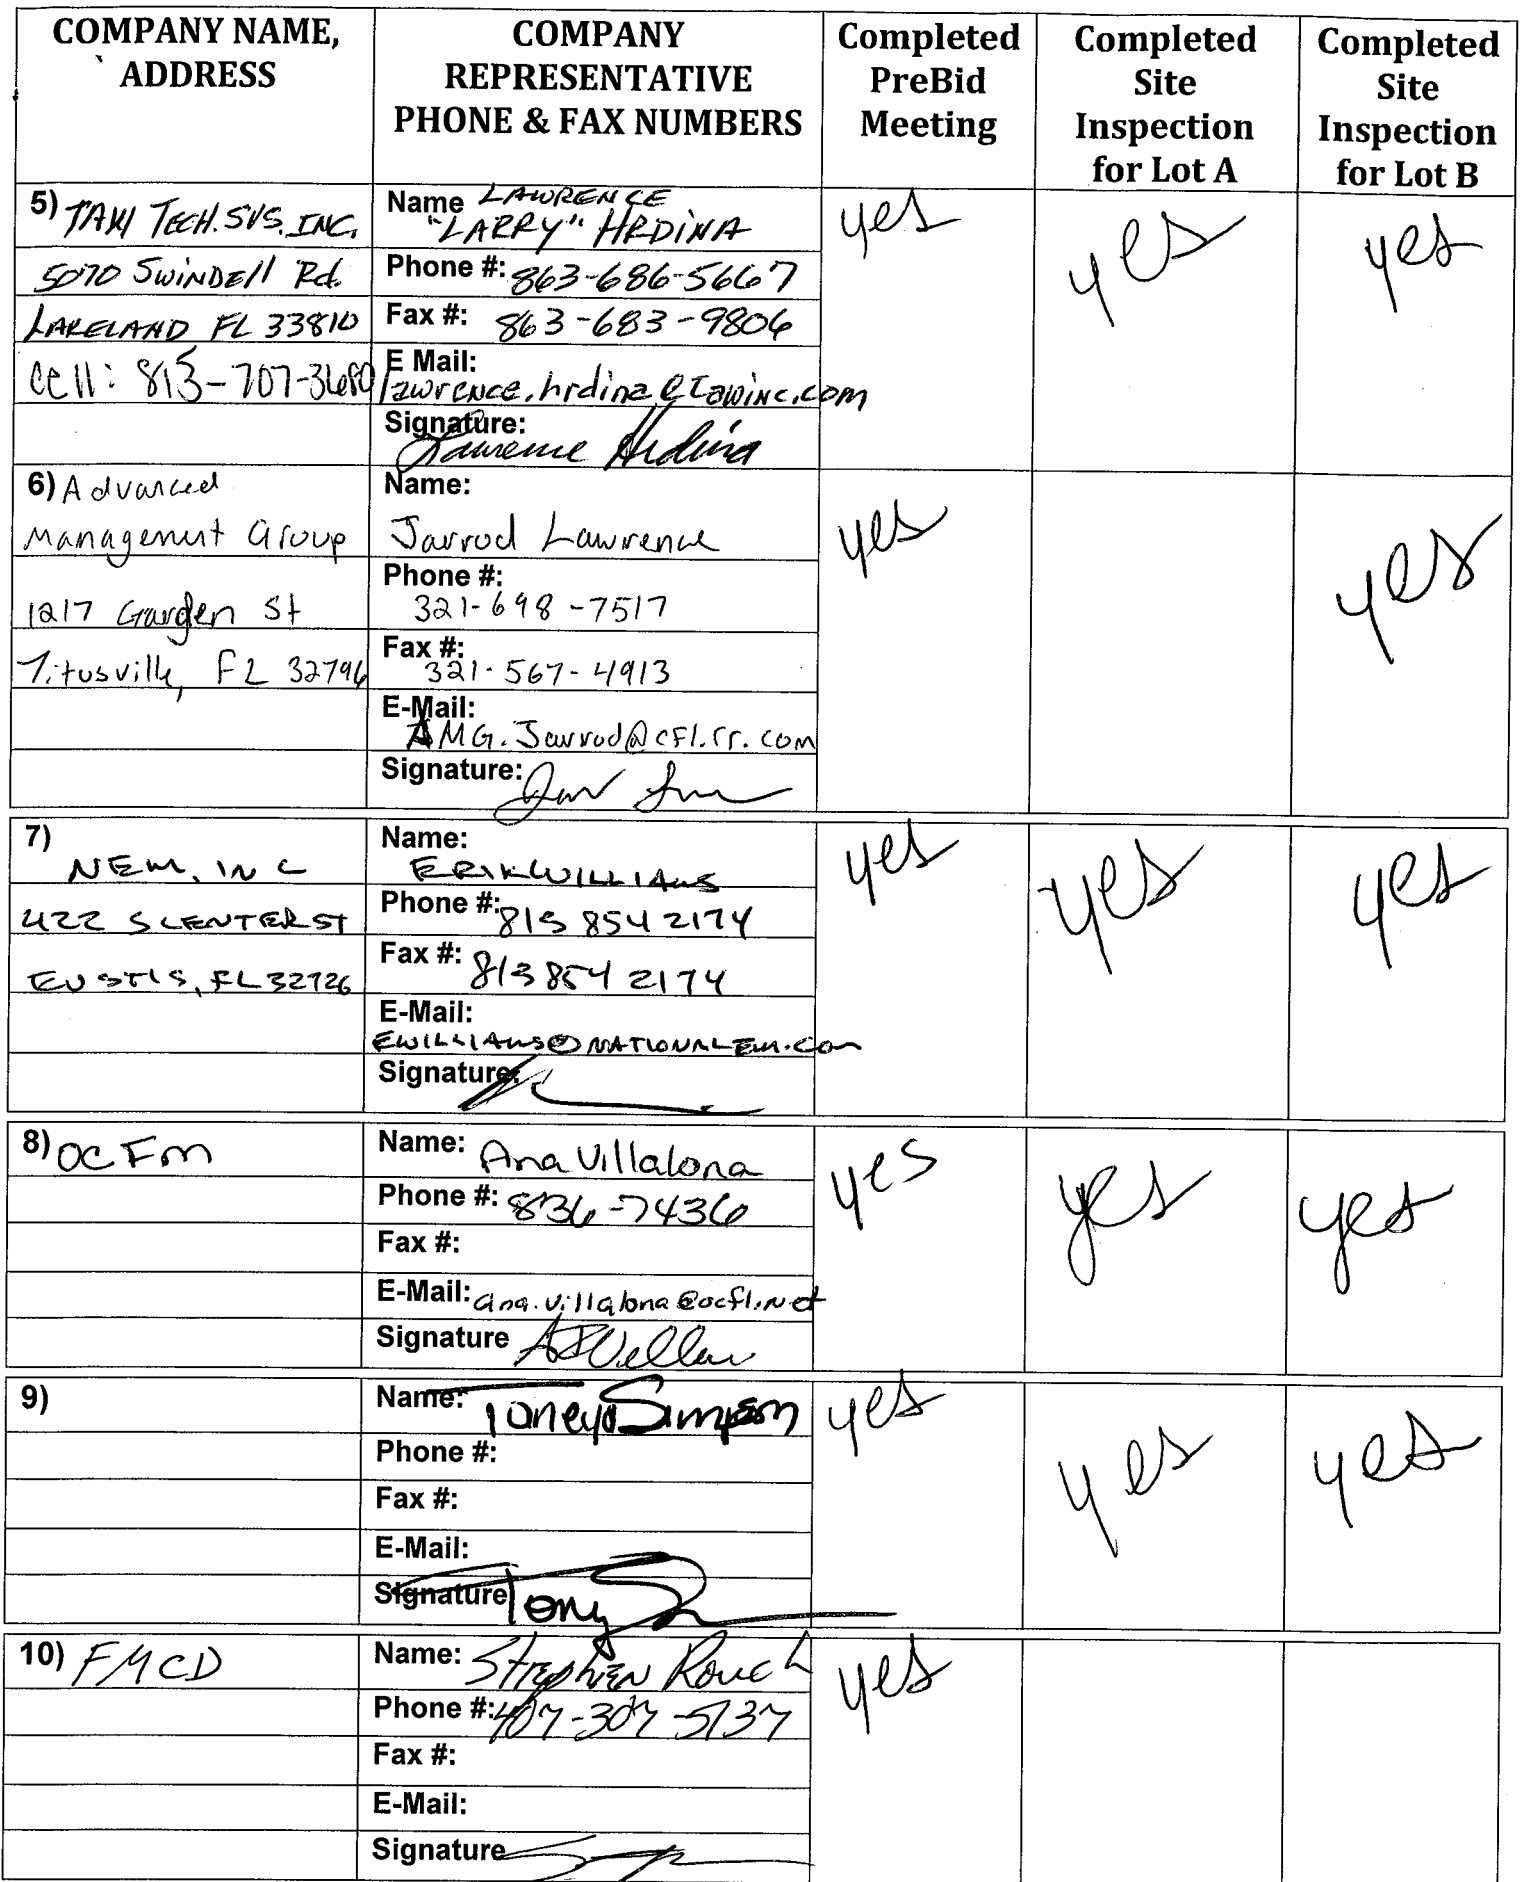 COMPANY NAME, ADDRESS
COMPANY REPRESENTATIVE PHONE & FAX NUMBERS
Completed PreBid Meeting
Completed Site Inspection for Lot A
Completed Site Inspection for Lot B
5) TAW TECH. SVS. INC.
5070 SWINDEll Rd.
LAKELAND FL 33810
Cell: 813-707-3680
Name LAWRENCE
"LARRY" HRDINA
Phone #: 863-686-5667
Fax #: 863-683-9806
E Mail:
lawrence.hrdina@tawinc.com
Signature: Lawrence Hrdina
yes
yes
yes
6) Advanced
Management Group
1217 Garden St
Titusville, FL 32796
Name:
Jarrod Lawrence
Phone #:
321-698-7517
Fax #:
321-567-4913
E-Mail:
AMG.Jarrod@cfl.rr.com
Signature:
yes
yes
7)
NEM, INC
422 S CENTER ST
EUSTIS, FL 32726
Name:
ERIK WILLIAMS
Phone #: 813 854 2174
Fax #: 813 854 2174
E-Mail:
EWILLIAMS@NATIONALEM.com
Signature:
yes
yes
yes
8) OCFM
Name: Ana Villalona
Phone #: 836-7436
Fax #:
E-Mail: ana.villalona@ocfl.net
Signature
yes
yes
yes
9)
Name: Toney Simpson
Phone #:
Fax #:
E-Mail:
Signature Tony
yes
yes
yes
10) FMCD
Name: Stephen Rouch
Phone #: 407-307-5737
Fax #:
E-Mail:
Signature
yes